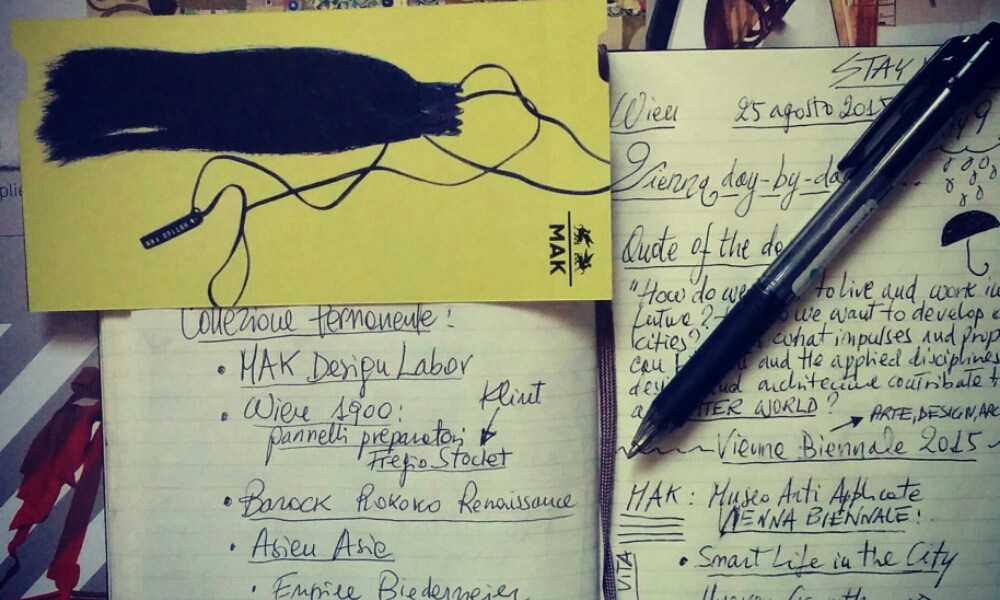 MAK
Collezione Permanente:
• MAK Design Labor
• Wien 1900:
Klimt
pannelli preparatori
Fregio Stoclet
• Barock Rokoko Renaissance
• Asien Asie
• Empire Biedermeier
STAY
Wien 25 agosto 2015
Vienna day-by-da
Quote of the da
"How do we to live and work in
future? we want to develop
cities? what impulses and prop
can and the applied disciplines
des and architecture contribute t
a TTER WORLD?
ARTE, DESIGN, ARC
Vienna Biennale 2015
MAK: Museo Arti Applicate
VIENNA BIENNALE:
VITA
• Smart Life in the City